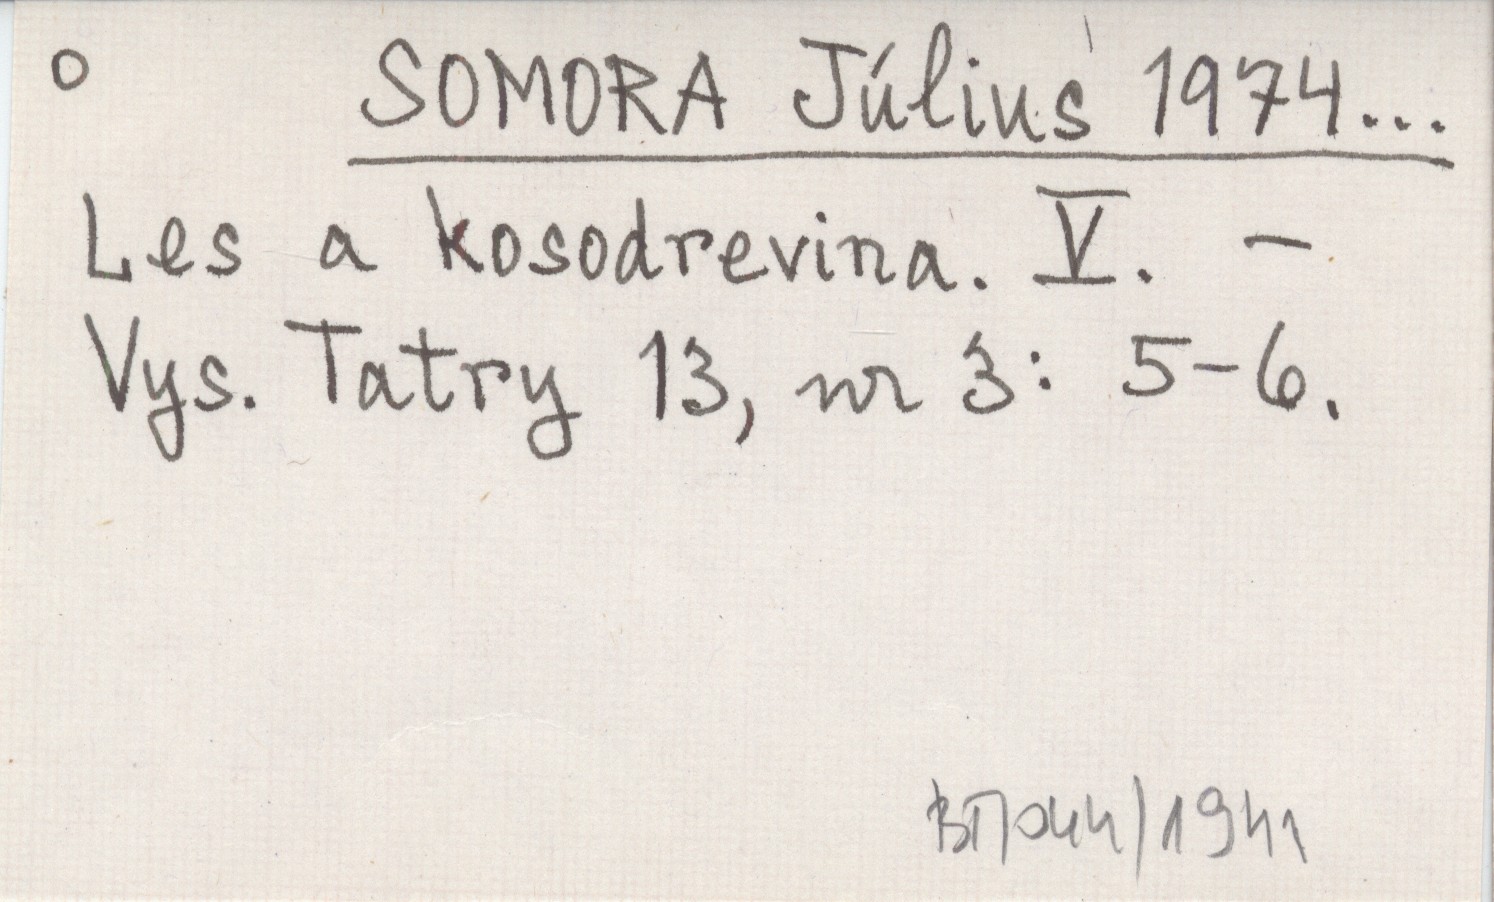 o SOMORA Július 1974...
Les a kosodrevina. V. –
Vys. Tatry 13, nr 3: 5–6.